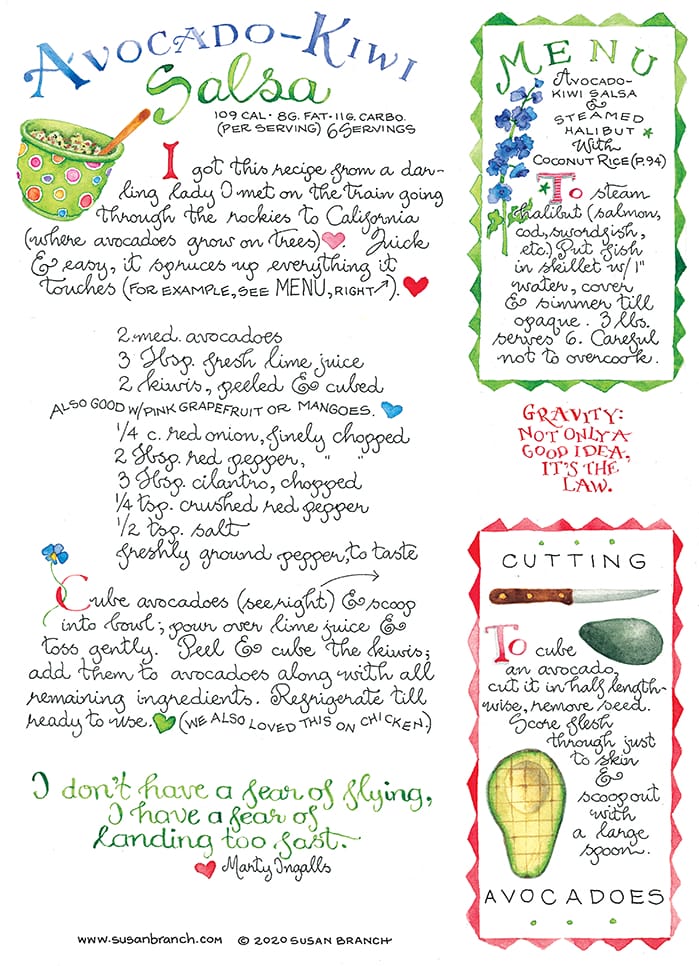 AVOCADO-KIWI
Salsa
109 CAL· 8G. FAT·11G. CARBO.
(PER SERVING) 6 SERVINGS
I got this recipe from a dar-
ling lady I met on the train going
through the rockies to California
(where avocadoes grow on trees). Quick
& easy, it spruces up everything it
touches (FOR EXAMPLE, SEE MENU, RIGHT↗).
2 med. avocadoes
3 Tbsp. fresh lime juice
2 kiwis, peeled & cubed
ALSO GOOD W/PINK GRAPEFRUIT OR MANGOES.
1/4 c. red onion, finely chopped
2 Tbsp. red pepper, " "
3 Tbsp. cilantro, chopped
1/4 tsp. crushed red pepper
1/2 tsp. salt
freshly ground pepper, to taste
Cube avocadoes (see right) & scoop
into bowl; pour over lime juice &
toss gently. Peel & cube the kiwis;
add them to avocadoes along with all
remaining ingredients. Refrigerate till
ready to use. (WE ALSO LOVED THIS ON CHICKEN.)
I don't have a fear of flying,
I have a fear of
landing too fast.
Marty Ingalls
www.susanbranch.com © 2020 SUSAN BRANCH
MENU
AVOCADO-
KIWI SALSA
&
STEAMED
HALIBUT
With
COCONUT RICE (P.94)
To steam
halibut (salmon,
cod, swordfish,
etc.) Put fish
in skillet w/ 1"
water, cover
& simmer till
opaque. 3 lbs.
serves 6. Careful
not to overcook.
GRAVITY:
NOT ONLY A
GOOD IDEA,
IT'S THE
LAW.
CUTTING
To cube
an avocado,
cut it in half length-
wise, remove seed.
Score flesh
through just
to skin
&
scoop out
with
a large
spoon.
AVOCADOES